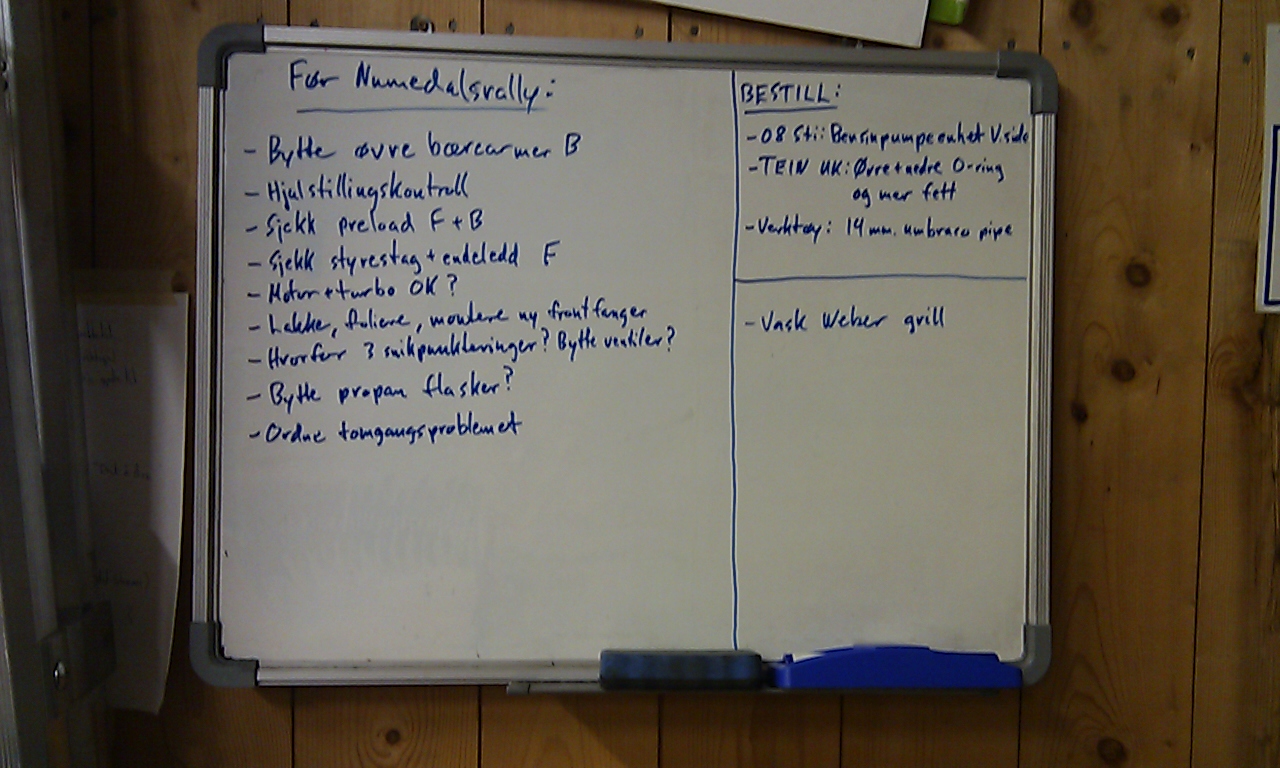 Før Numedalsrally:
- Bytte øvre bærearmer B
- Hjulstillingskontroll
- Sjekk preload F + B
- Sjekk styrestag + endeledd F
- Motor + turbo OK ?
- Lakke, foliere, montere ny frontfanger
- Hvorfor 3 snikpunkteringer? Bytte ventiler?
- Bytte propan flasker?
- Ordne tomgangsproblemet
BESTILL:
- 08 Sti: Bensinpumpeenhet V.side
- TEIN UK: Øvre + nedre O-ring
og mer fett
- Verktøy: 14 mm. umbraco pipe
- Vask Weber grill